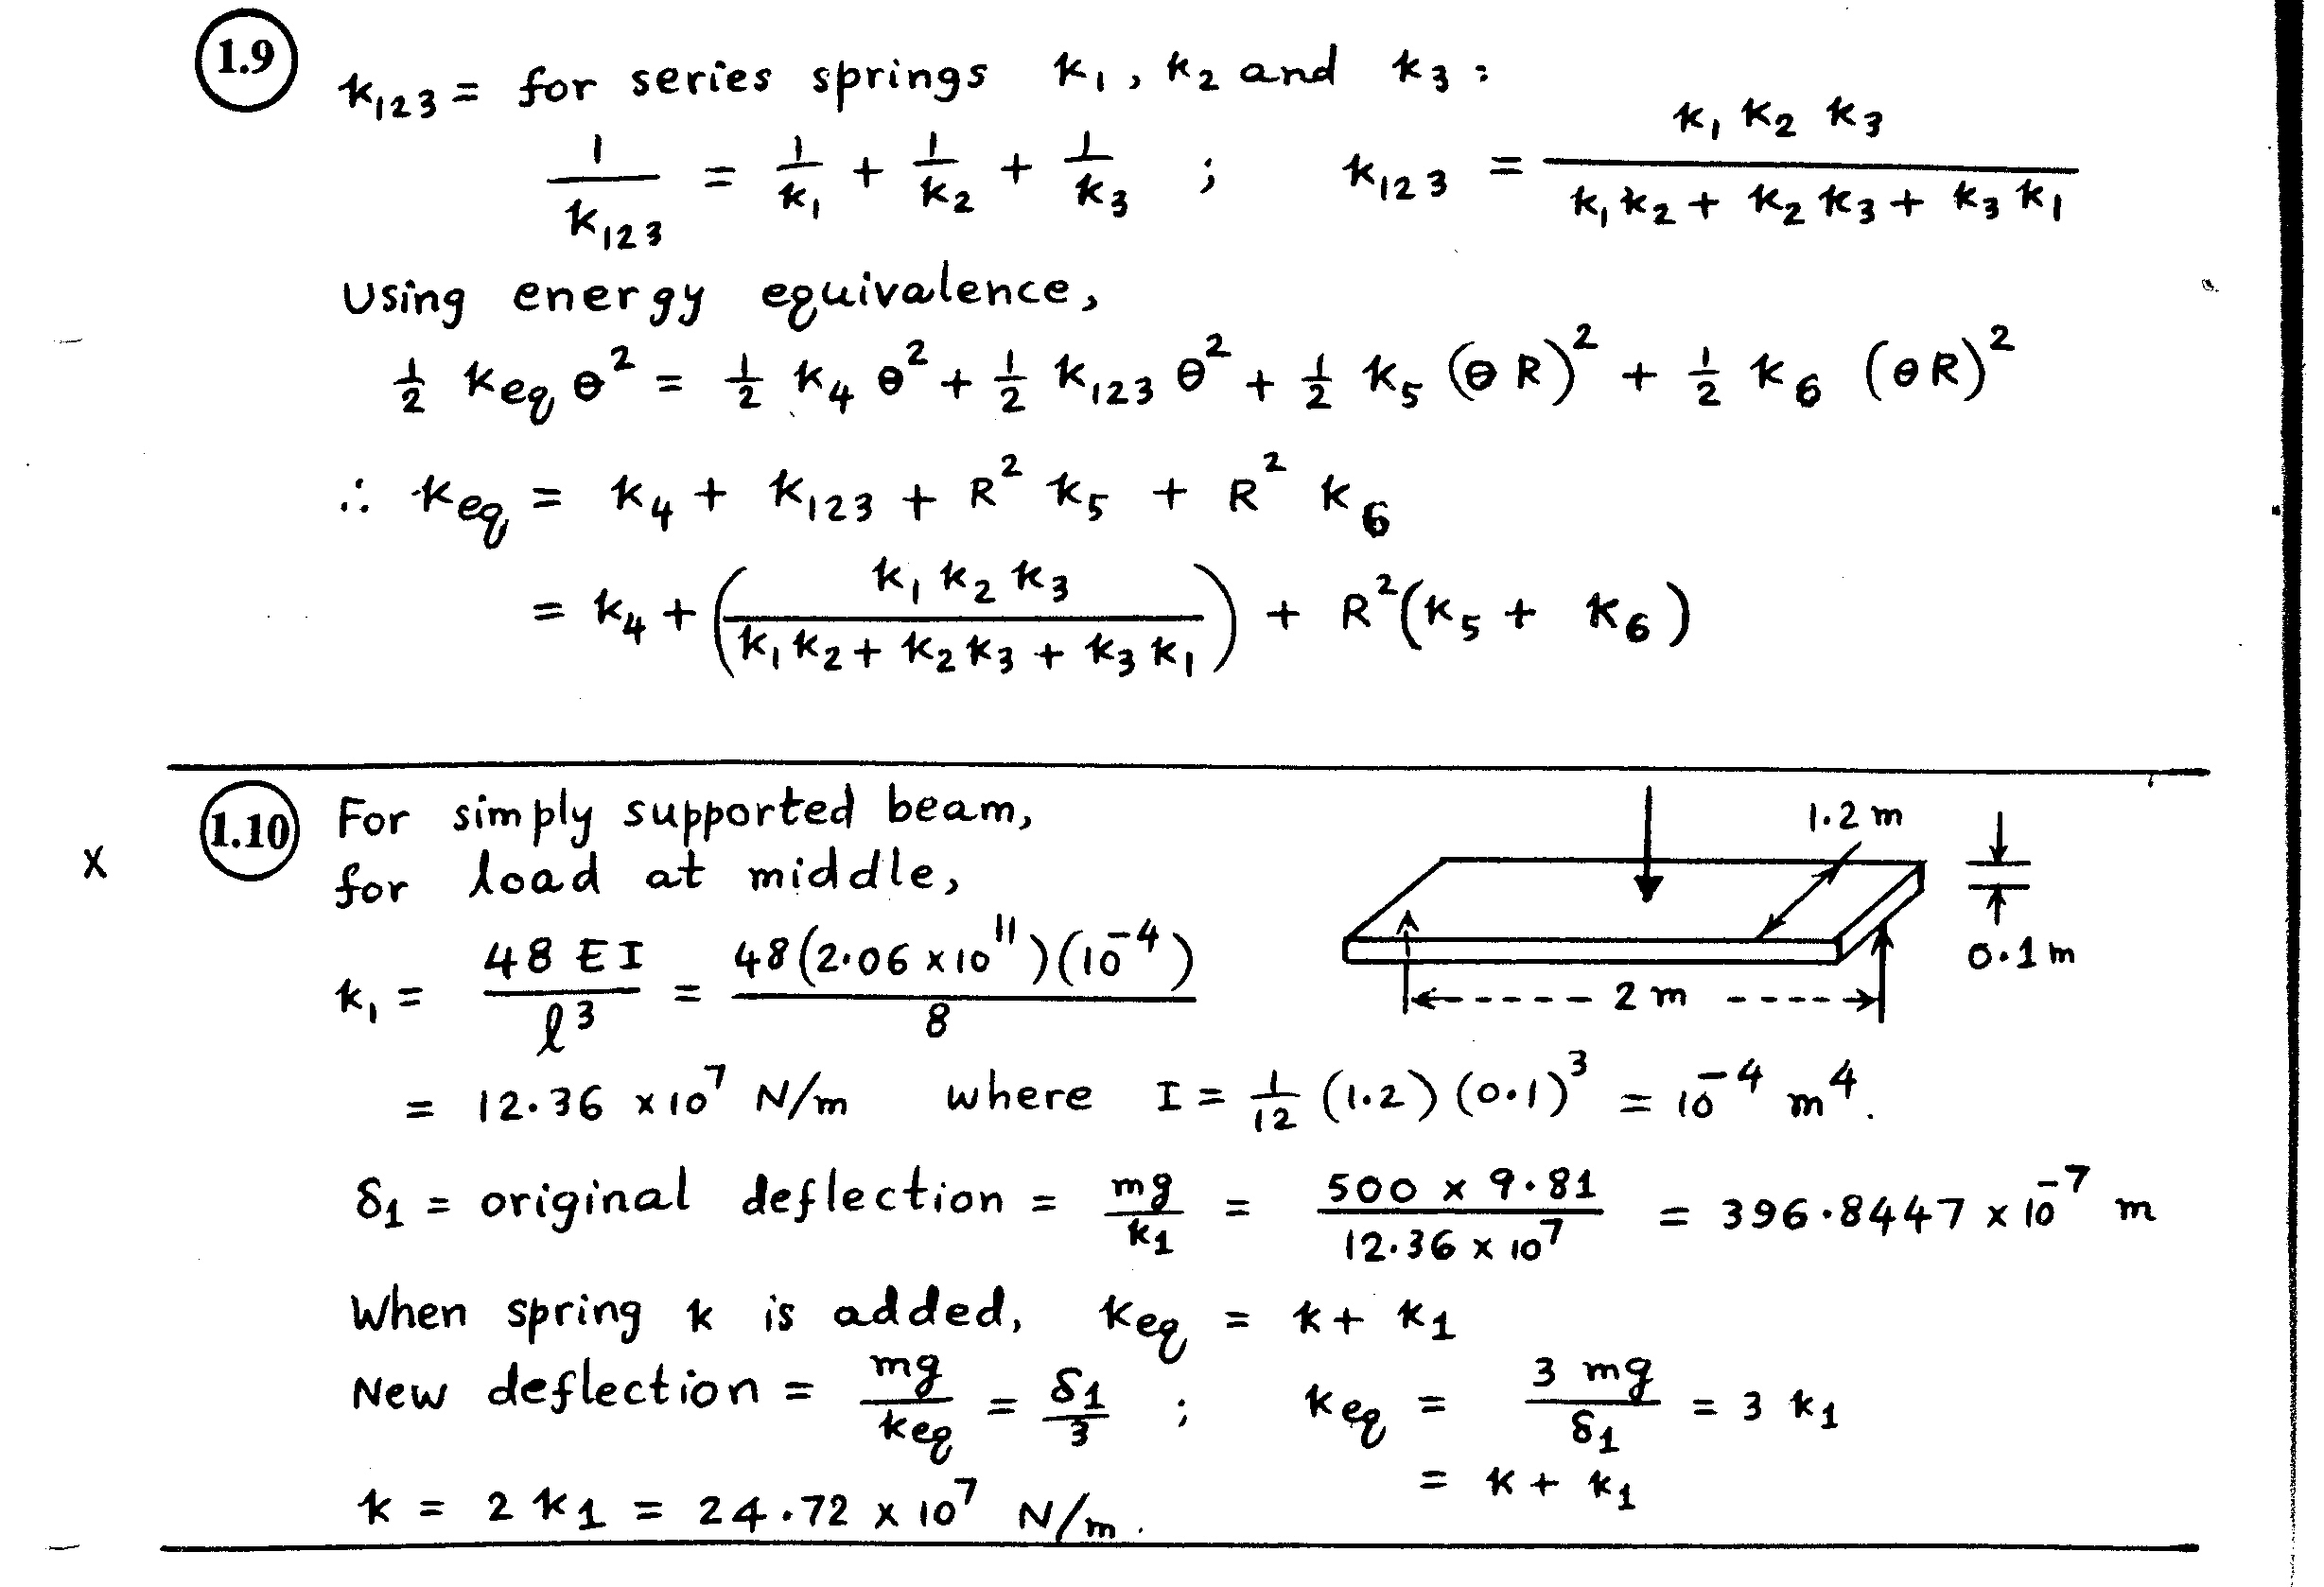 1.9
k₁₂₃ = for series springs k₁, k₂ and k₃ :
1/k₁₂₃ = 1/k₁ + 1/k₂ + 1/k₃ ; k₁₂₃ = k₁ k₂ k₃ / k₁ k₂ + k₂ k₃ + k₃ k₁
Using energy equivalence,
1/2 k_eq θ² = 1/2 k₄ θ² + 1/2 k₁₂₃ θ² + 1/2 k₅ (θ R)² + 1/2 k₆ (θ R)²
∴ k_eq = k₄ + k₁₂₃ + R² k₅ + R² k₆
= k₄ + (k₁ k₂ k₃ / k₁ k₂ + k₂ k₃ + k₃ k₁) + R² (k₅ + k₆)
1.10 For simply supported beam,
x
for load at middle,
k₁ = 48 E I / l³ = 48 (2.06 x 10¹¹) (10⁻⁴) / 8
1.2 m
0.1 m
2 m
= 12.36 x 10⁷ N/m where I = 1/12 (1.2) (0.1)³ = 10⁻⁴ m⁴.
δ₁ = original deflection = mg/k₁ = 500 x 9.81 / 12.36 x 10⁷ = 396.8447 x 10⁻⁷ m
When spring k is added, k_eq = k + k₁
New deflection = mg/k_eq = δ₁/3 ; k_eq = 3 mg / δ₁ = 3 k₁
= k + k₁
k = 2 k₁ = 24.72 x 10⁷ N/m.